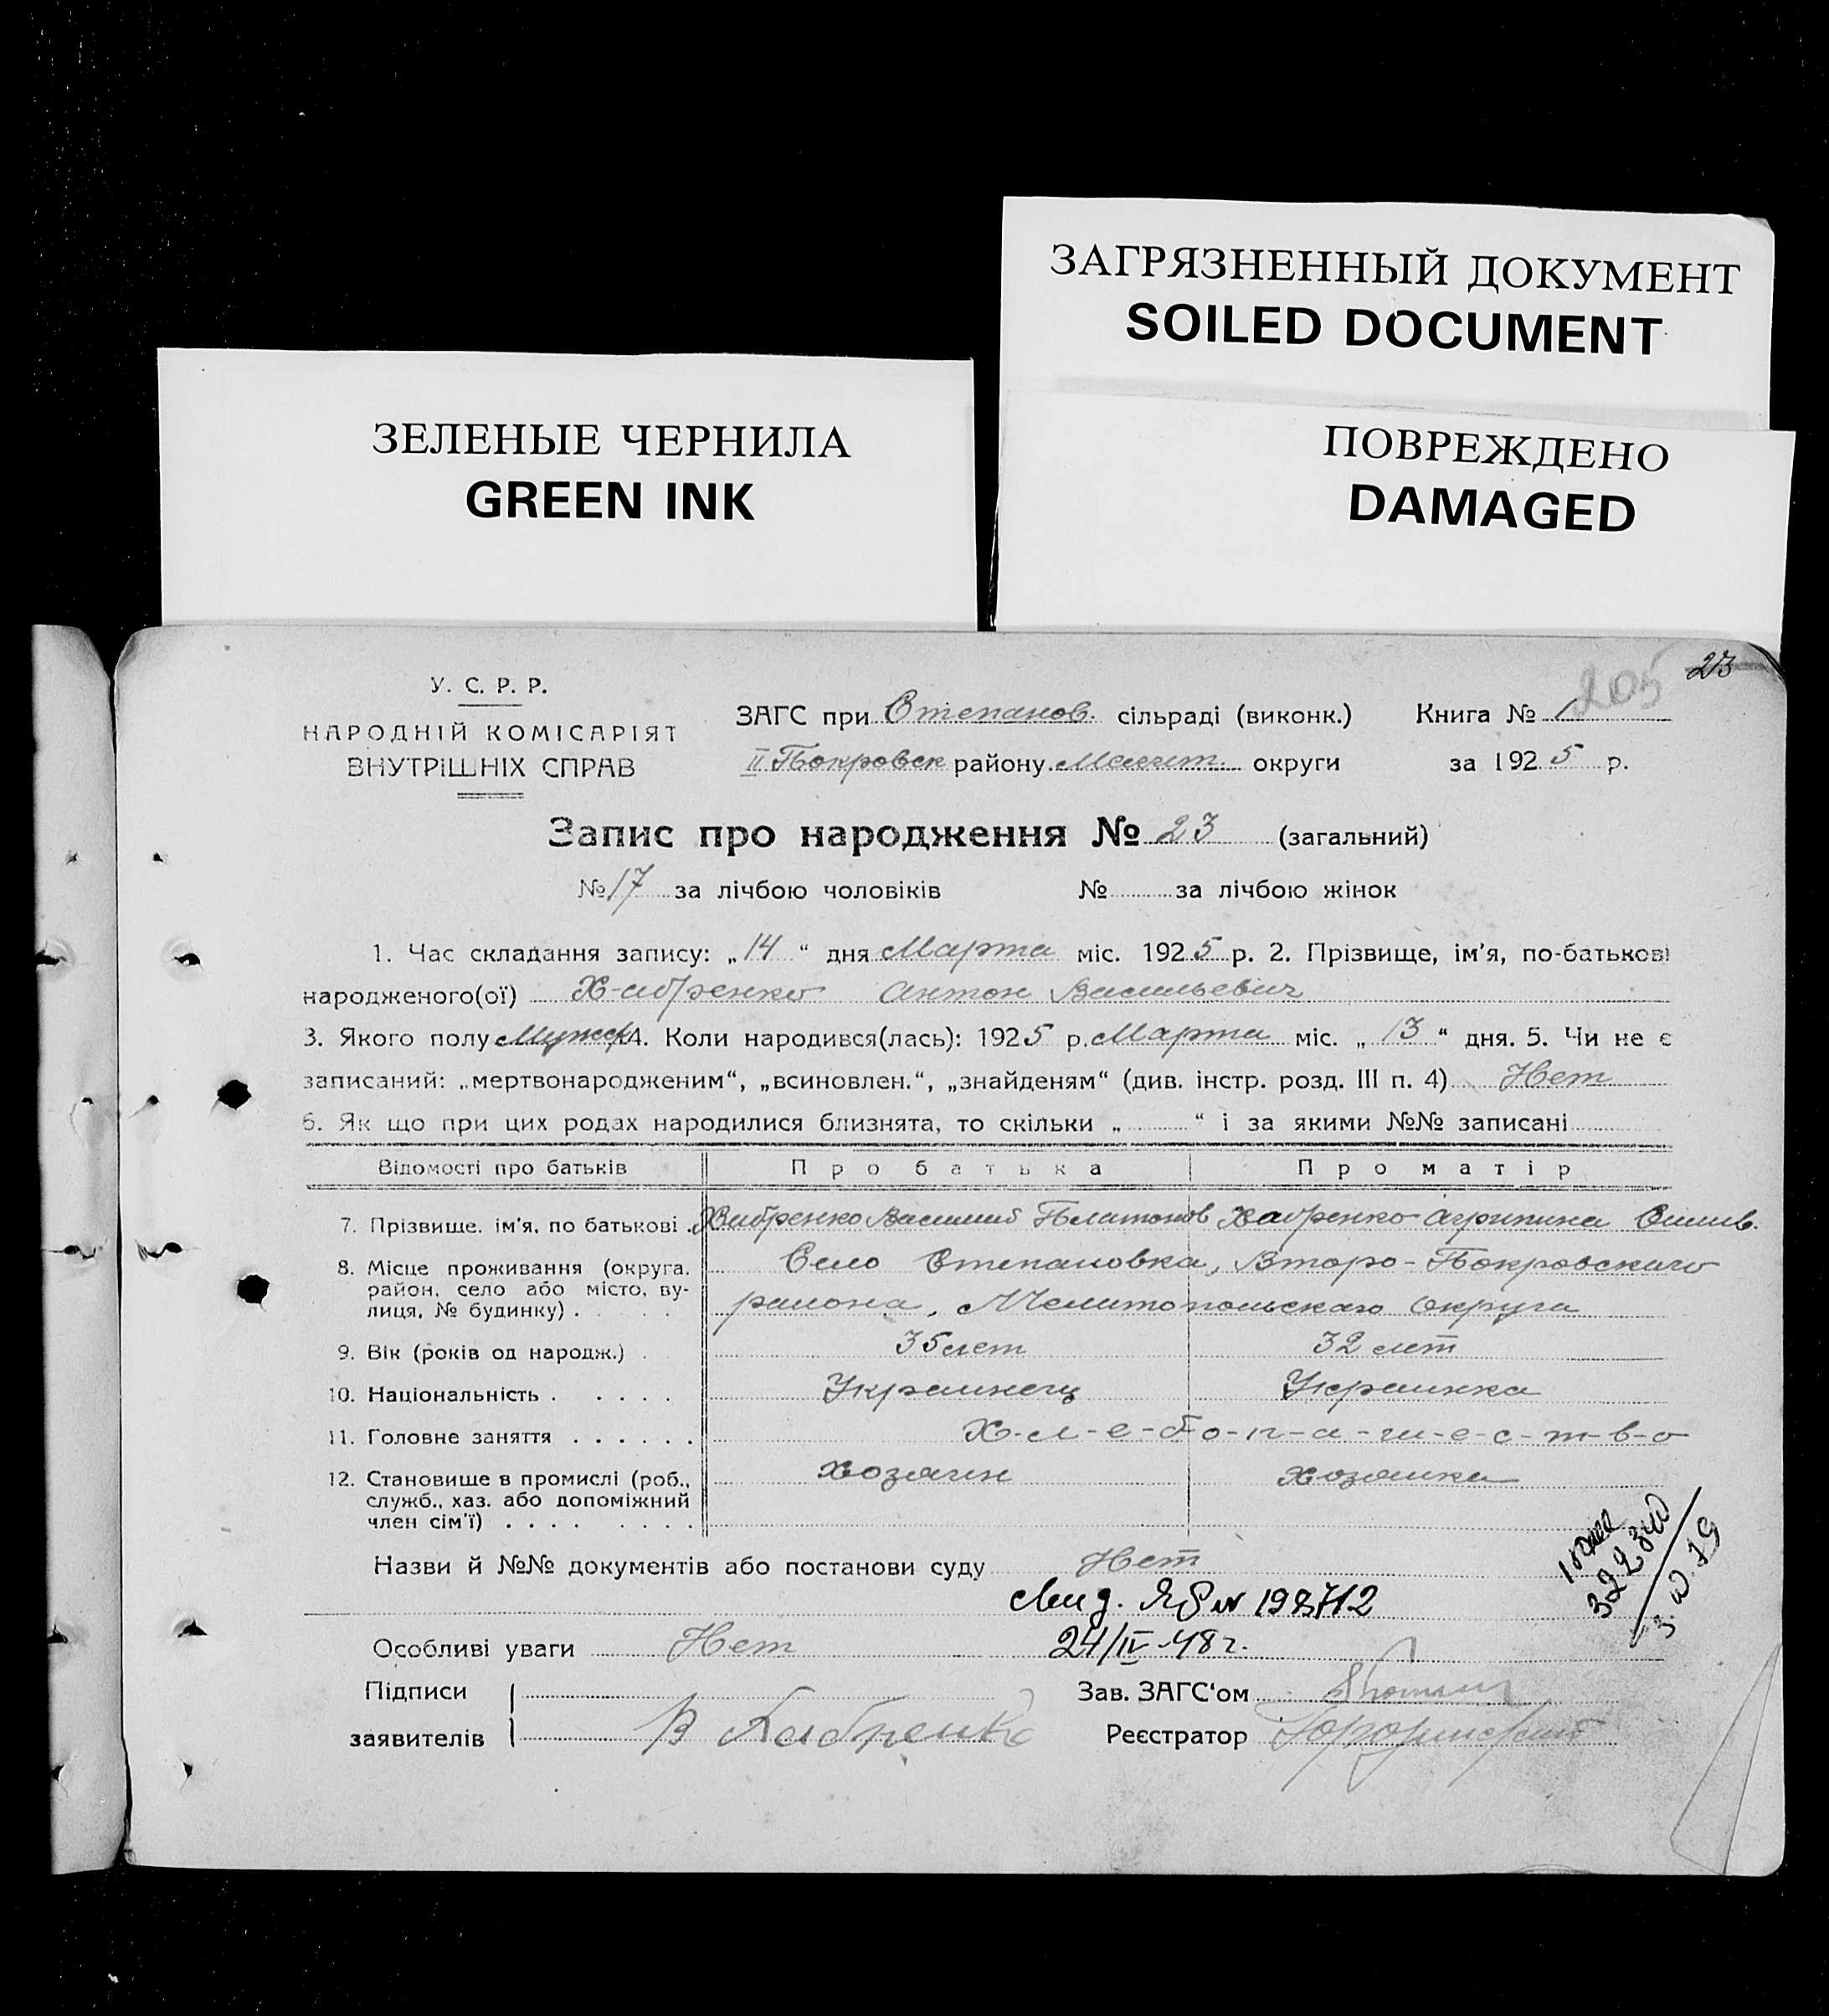 ЗАГРЯЗНЕННЫЙ ДОКУМЕНТ
SOILED DOCUMENT
ЗЕЛЕНЫЕ ЧЕРНИЛА
GREEN INK
ПОВРЕЖДЕНО
DAMAGED
205 23
У. С. Р. Р.
НАРОДНІЙ КОМІСАРІЯТ
ВНУТРІШНІХ СПРАВ
ЗАГС при Степанов. сільраді (виконк.) Книга № 1
II Покровск району Мелит. округи за 1925 р.
Запис про народження № 23 (загальний)
№ 17 за лічбою чоловіків № за лічбою жінок
1. Час складання запису: „14“ дня Марта міс. 1925 р. 2. Прізвище, ім'я, по-батькові
народженого(ої) Хабренко Антон Васильевич
3. Якого полу Мужск 4. Коли народився(лась): 1925 р. Марта міс. „13“ дня. 5. Чи не є
записаний: „мертвонародженим“, „всиновлен.“, „знайденям“ (див. інстр. розд. III п. 4) Нет
6. Як що при цих родах народилися близнята, то скільки „ “ і за якими №№ записані
Відомості про батьків Про батька Про матір
7. Прізвище, ім'я, по батькові . Хабренко Василий Платонов Хабренко Агрипина
8. Місце проживання (округа, район, село або місто, вулиця, № будинку) . Село Степановка, Второ-Покровского
района, Мелитопольскаго округа
9. Вік (років од народж.) . 35 лет 32 лет
10. Національність . . . . . Украинец Украинка
11. Головне заняття . . . . . . Х-л-е-б-о-п-а-ш-е-с-т-в-о
12. Становище в промислі (роб., служб., хаз. або допоміжний член сім'ї) . . . . . . . . Хозяин Хозяйка
Назви й №№ документів або постанови суду Нет
198712
Особливі уваги Нет 24/IV-48 г.
322340
3. 10. 79
Підписи Зав. ЗАГС'ом
заявителів В Хабренко Реєстратор